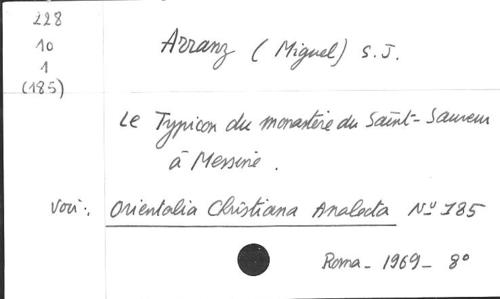 228
10
1
(185)
Arranz (Miguel) S.J.
Le Typicon du monastère du Saint-Sauveur
à Messine.
Voir: Orientalia Christiana Analecta Nº 185
Roma - 1969 - 8º